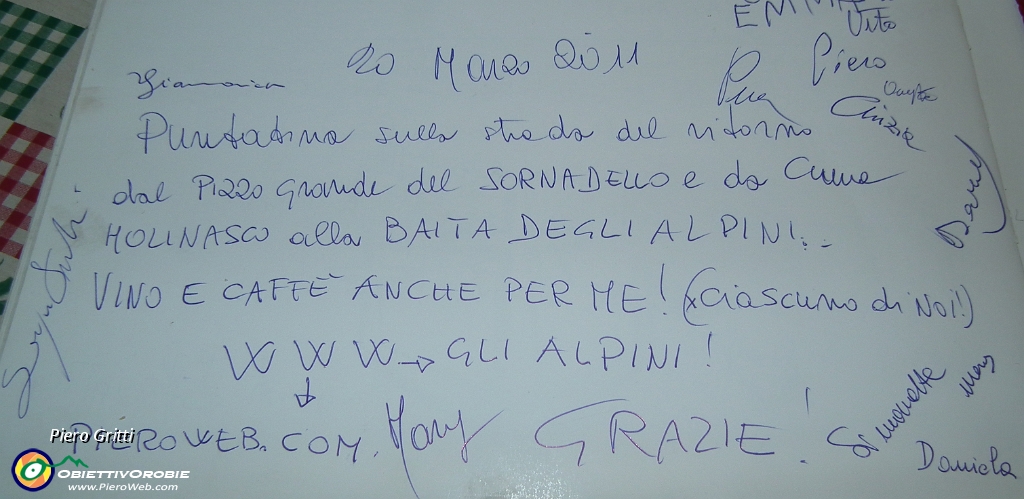 EMMA
Vito
20 Marzo 2011
Piero
Gianmaria
Cinzia
Puntatina sulla strada del ritorno
dal Pizzo Grande del SORNADELLO e da Cima
MOLINASCO alla BAITA DEGLI ALPINI...
VINO E CAFFÈ ANCHE PER ME! (x ciascuno di NOI!)
W W W → GLI ALPINI!
↓
PIEROWEB.COM. Mary GRAZIE!
Simonetta
Daniela
Piero Gritti
OBIETTIVOROBIE
www.PieroWeb.com